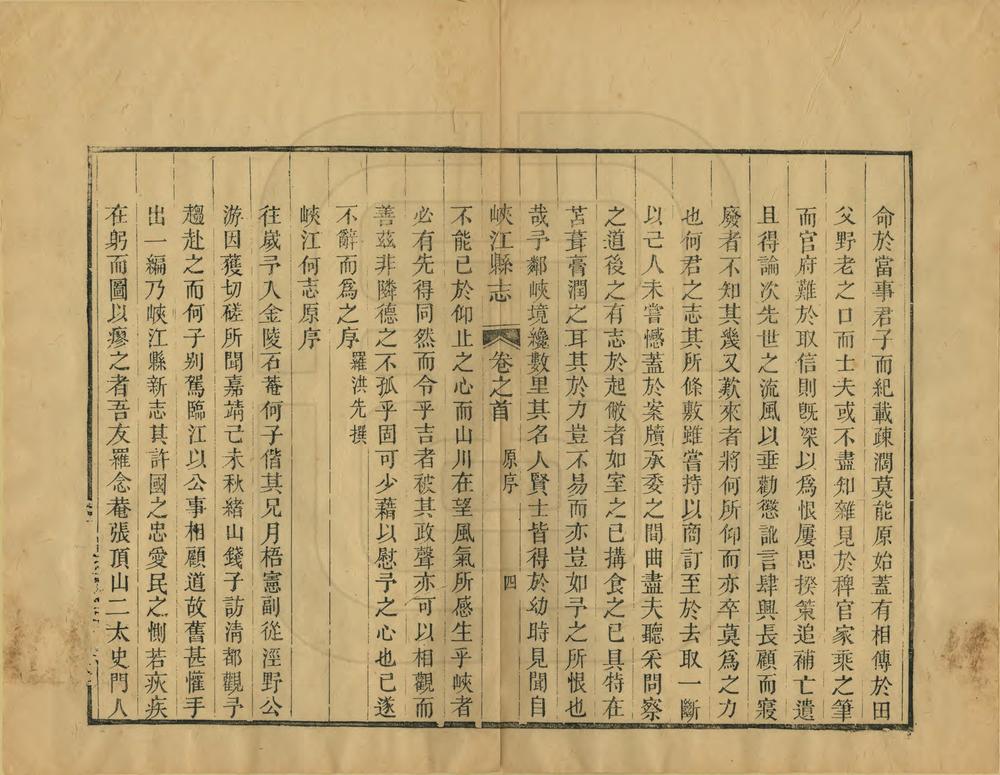 命於當事君子而紀載疎濶莫能原始蓋有相傳於田
父野老之口而士夫或不盡知雜見於稗官家乘之筆
而官府難於取信則旣深以爲恨屢思揆策追補亡遺
且得論次先世之流風以垂勸懲訛言肆興長顧而寢
廢者不知其幾又歎來者將何所仰而亦卒莫爲之力
也何君之志其所條敷雖嘗持以商訂至於去取一斷
以己人未嘗憾蓋於案牘承委之間曲盡夫聽采問察
之道後之有志於起敝者如室之已搆食之已具特在
苫葺膏潤之耳其於力豈不易而亦豈如予之所恨也
哉予鄰峽境纔數里其名人賢士皆得於幼時見聞自
峽江縣志 卷之首 原序 四
不能已於仰止之心而山川在望風氣所感生乎峽者
必有先得同然而令乎吉者被其政聲亦可以相觀而
善茲非隣德之不孤乎固可少藉以慰予之心也已遂
不辭而爲之序 羅洪先撰
峽江何志原序
往歲予入金陵石菴何子偕其兄月梧憲副從涇野公
游因獲切磋所聞嘉靖己未秋緒山錢子訪淸都觀予
趨赴之而何子别駕臨江以公事相顧道故舊甚懽手
出一編乃峽江縣新志其許國之忠愛民之惻若疢疾
在躬而圖以瘳之者吾友羅念菴張頂山二太史門人